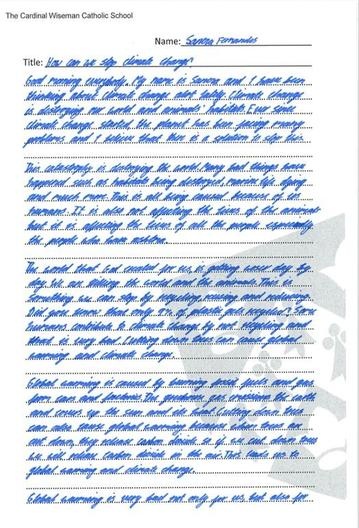 The Cardinal Wiseman Catholic School
Name: Sandra Fernandes
Title: How can we stop climate change?
Good morning everybody. My name is Sandra and I have been
thinking about climate change alot lately. Climate change
is destroying our world and animals' habitats. Ever since
climate change started, the planet has been facing many
problems and I believe that there is a solution to stop this.
This catastrophe is destroying the world. Many bad things have
happened such as habitats being destroyed, marine life dying
and much more. This is all being caused because of us
humans. It is also not affecting the lives of the animals
but it is affecting the lives of all the people especially
the people who have asthma.
The world that God created for us, is getting worse day by
day. We are killing the world and the animals. This is
something we can stop by recycling, reusing and reducing.
Did you know that only 9% of plastic gets recycled? Some
humans contribute to climate change by not recycling and
that is very bad. Cutting down trees can cause global
warming and climate change.
Global warming is caused by burning fossil fuels and gas
from cars and factories. The greenhouse gas the earth
and covers up the sun and the heat. Cutting down trees
can also cause global warming because when trees are
cut down, they release carbon dioxide so if we cut down trees
we will release carbon dioxide in the air. This leads us to
global warming and climate change.
Global warming is very bad not only for us but also for